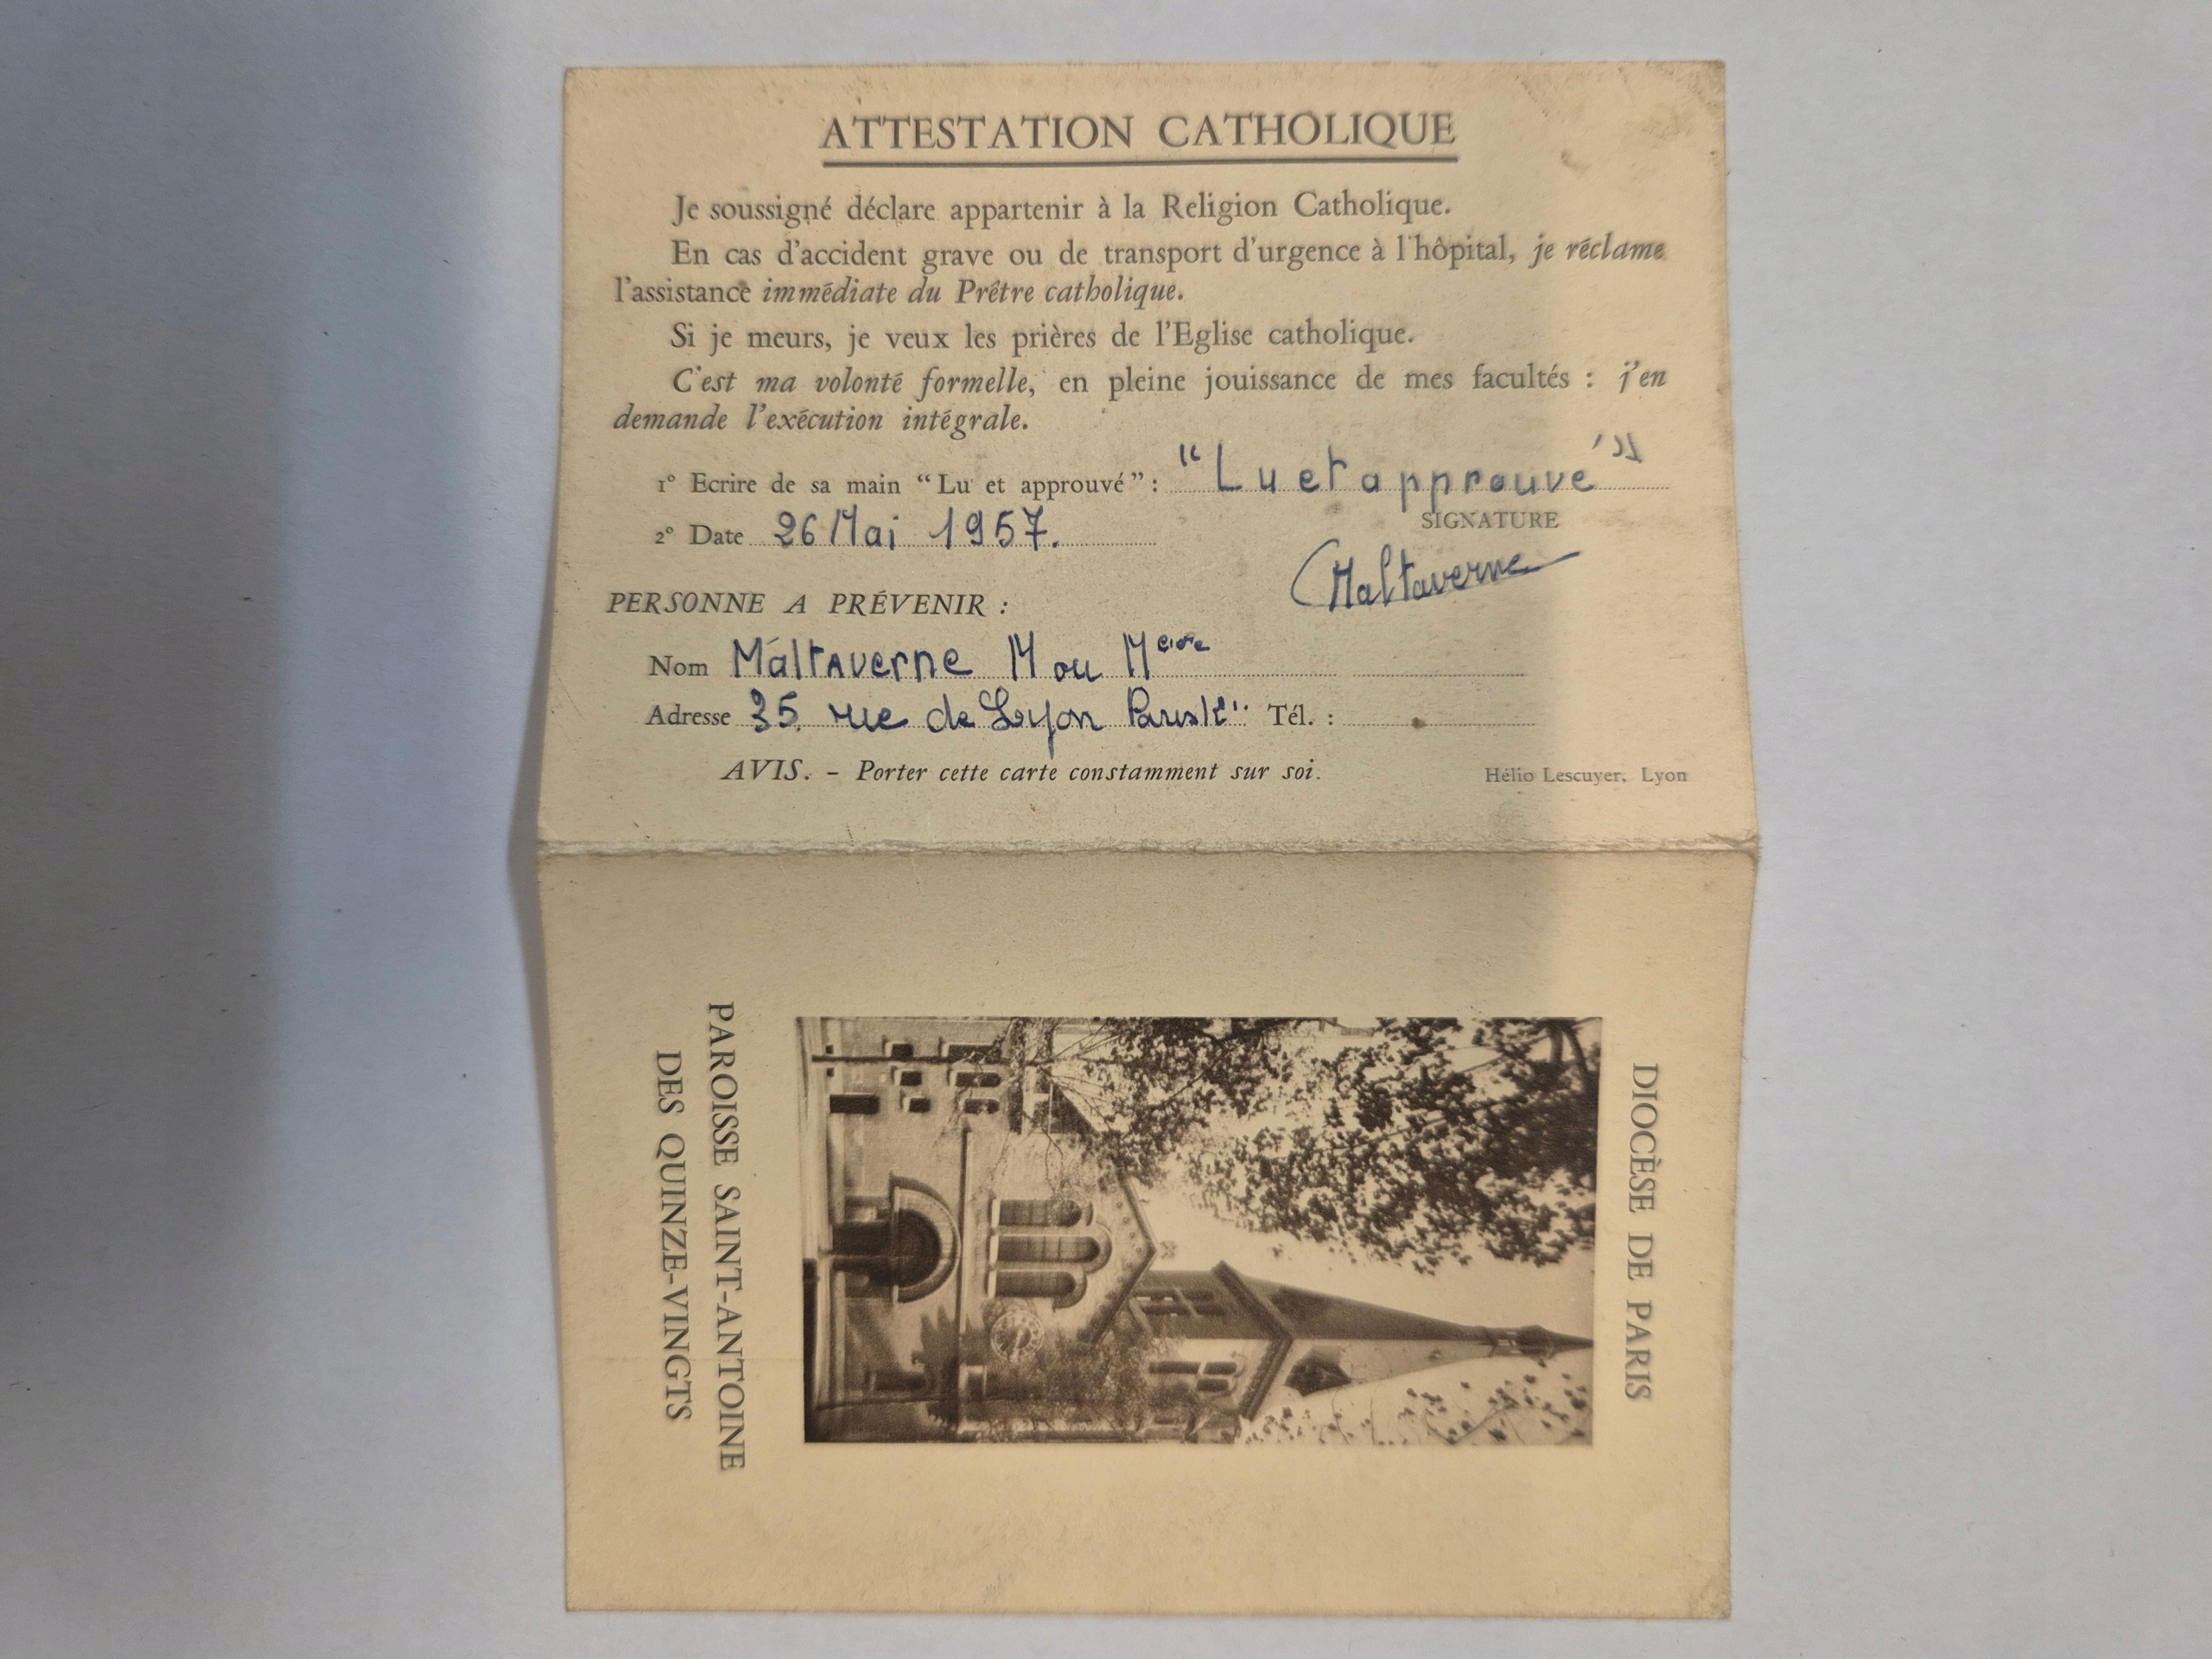 ATTESTATION CATHOLIQUE
Je soussigné déclare appartenir à la Religion Catholique.
En cas d'accident grave ou de transport d'urgence à l'hôpital, je réclame
l'assistance immédiate du Prêtre catholique.
Si je meurs, je veux les prières de l'Eglise catholique.
C'est ma volonté formelle, en pleine jouissance de mes facultés : j'en
demande l'exécution intégrale.
1° Ecrire de sa main “Lu et approuvé” : “Lu et approuvé”
SIGNATURE
2° Date 26 Mai 1957.
Maltaverne
PERSONNE A PRÉVENIR :
Nom Maltaverne M ou
Adresse 35 rue de Lyon Paris Tél. :
AVIS. - Porter cette carte constamment sur soi.
Hélio Lescuyer, Lyon
DIOCÈSE DE PARIS
PAROISSE SAINT-ANTOINE
DES QUINZE-VINGTS